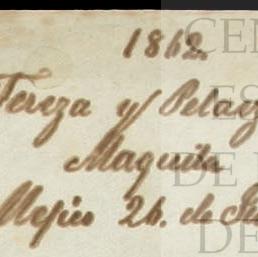 1862.
Tereza y Pelaez
Maquita
Mejico 26. de
CEN
ES
DE
DE